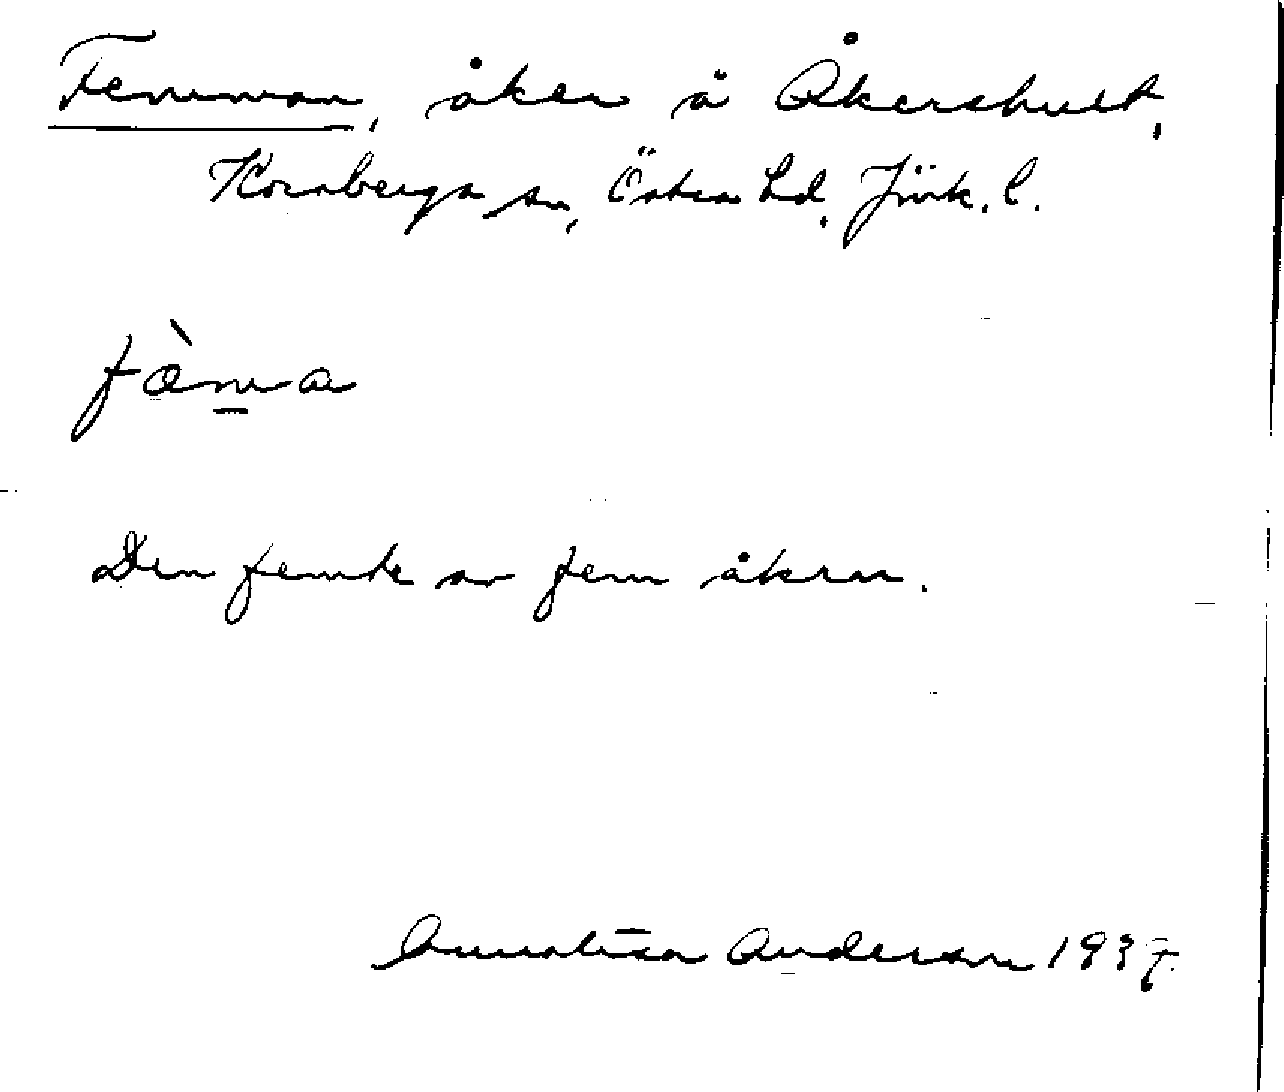 Femman, åker å Åkershult,
Korsberga sn, Östra hd, Jönk. l.
fàma
Den femte av fem åkrar.
Annalisa Anderson 1937.